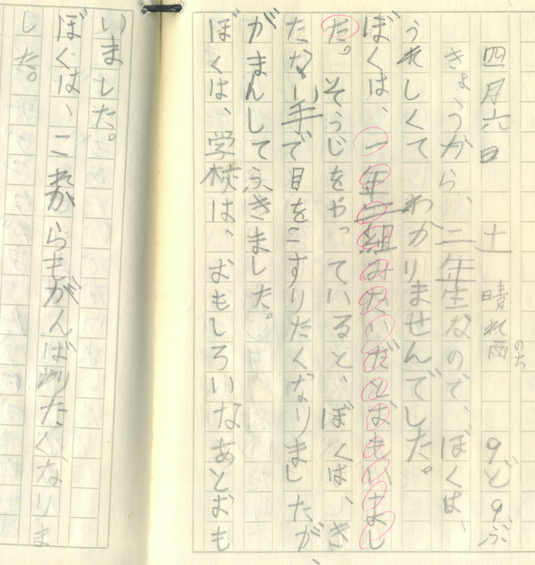 四月六日 土 晴れのち雨 9ど9ぶ
きょうから、二年生なので、ぼくは、
うれしくて わかりませんでした。
ぼくは、一年二組みたいだとおもいまし
た。 そうじをやっていると、ぼくは、き
たない手で目をこすりたくなりましたが
がまんしてふきました。
ぼくは、学校は、おもしろいなあとおも
いました。
ぼくは、これからもがんばりたくなりま
した。